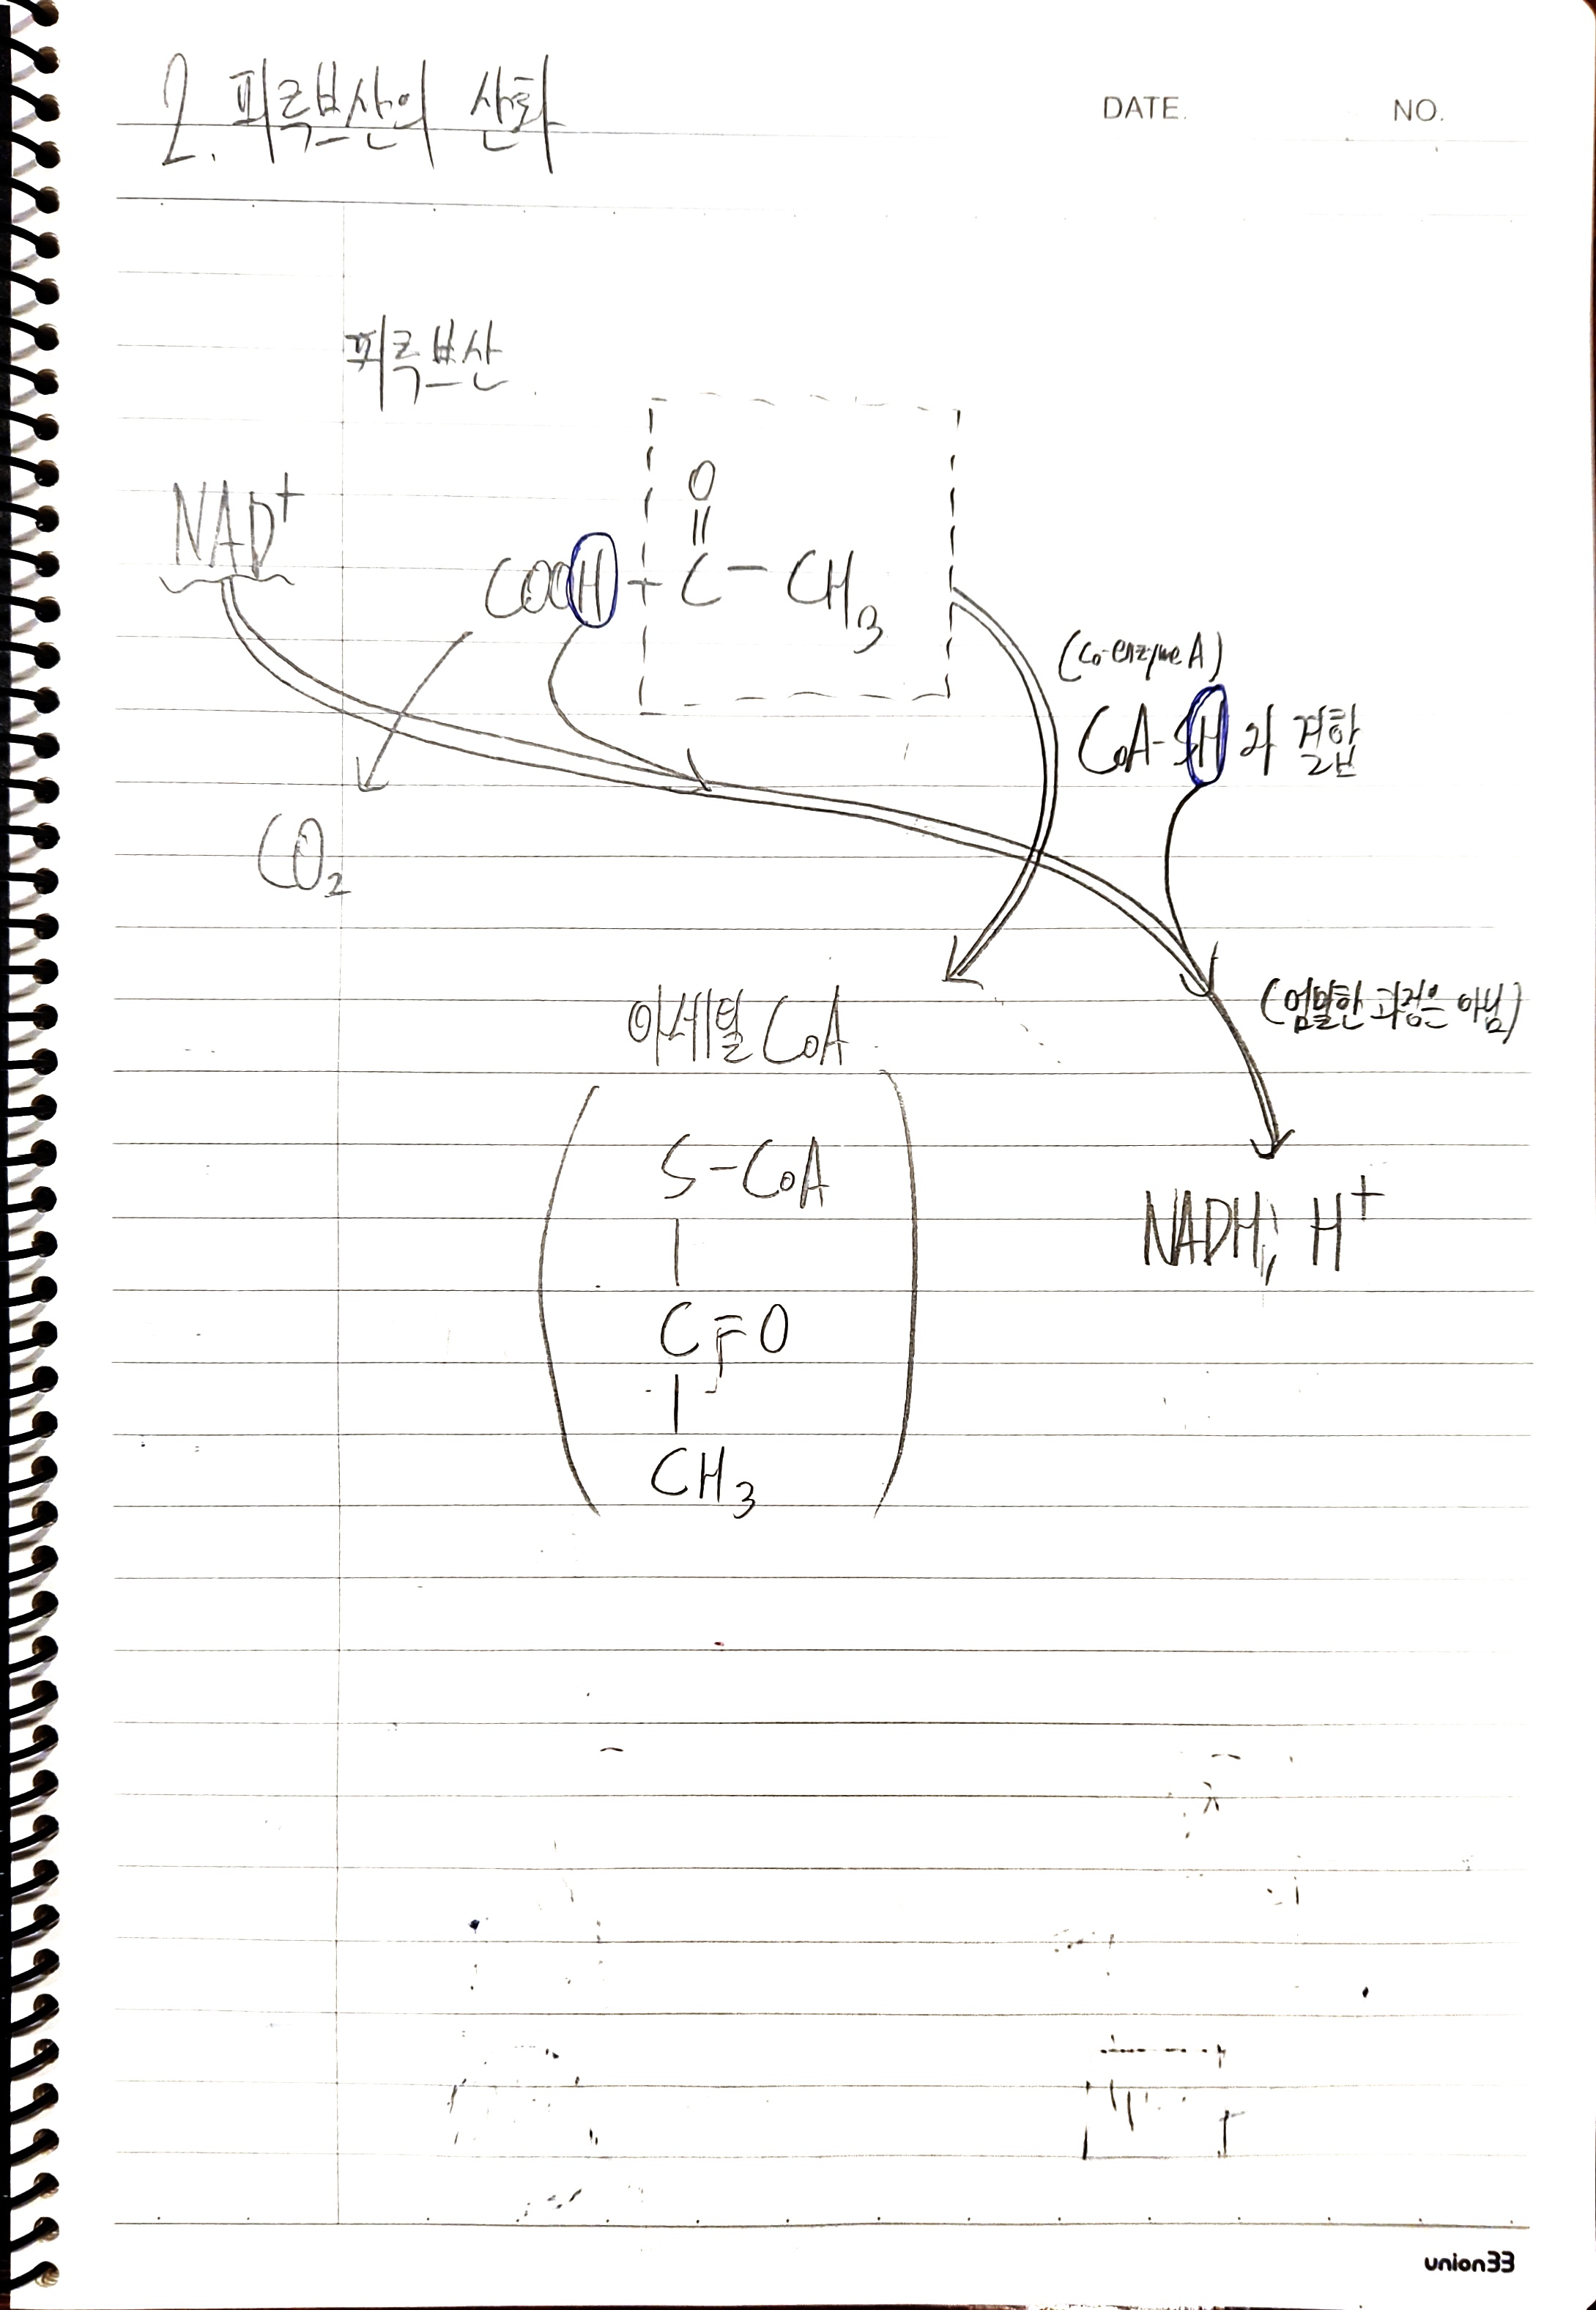 2. 피루브산의 산화
DATE.
NO.
피루브산
NAD⁺
O
||
COOH + C - CH₃
(Co-enzyme A)
CoA-SH 와 결합
CO₂
(엄밀한 과정은 아님)
아세틸 CoA
S-CoA
|
C=O
|
CH₃
NADH, H⁺
union33